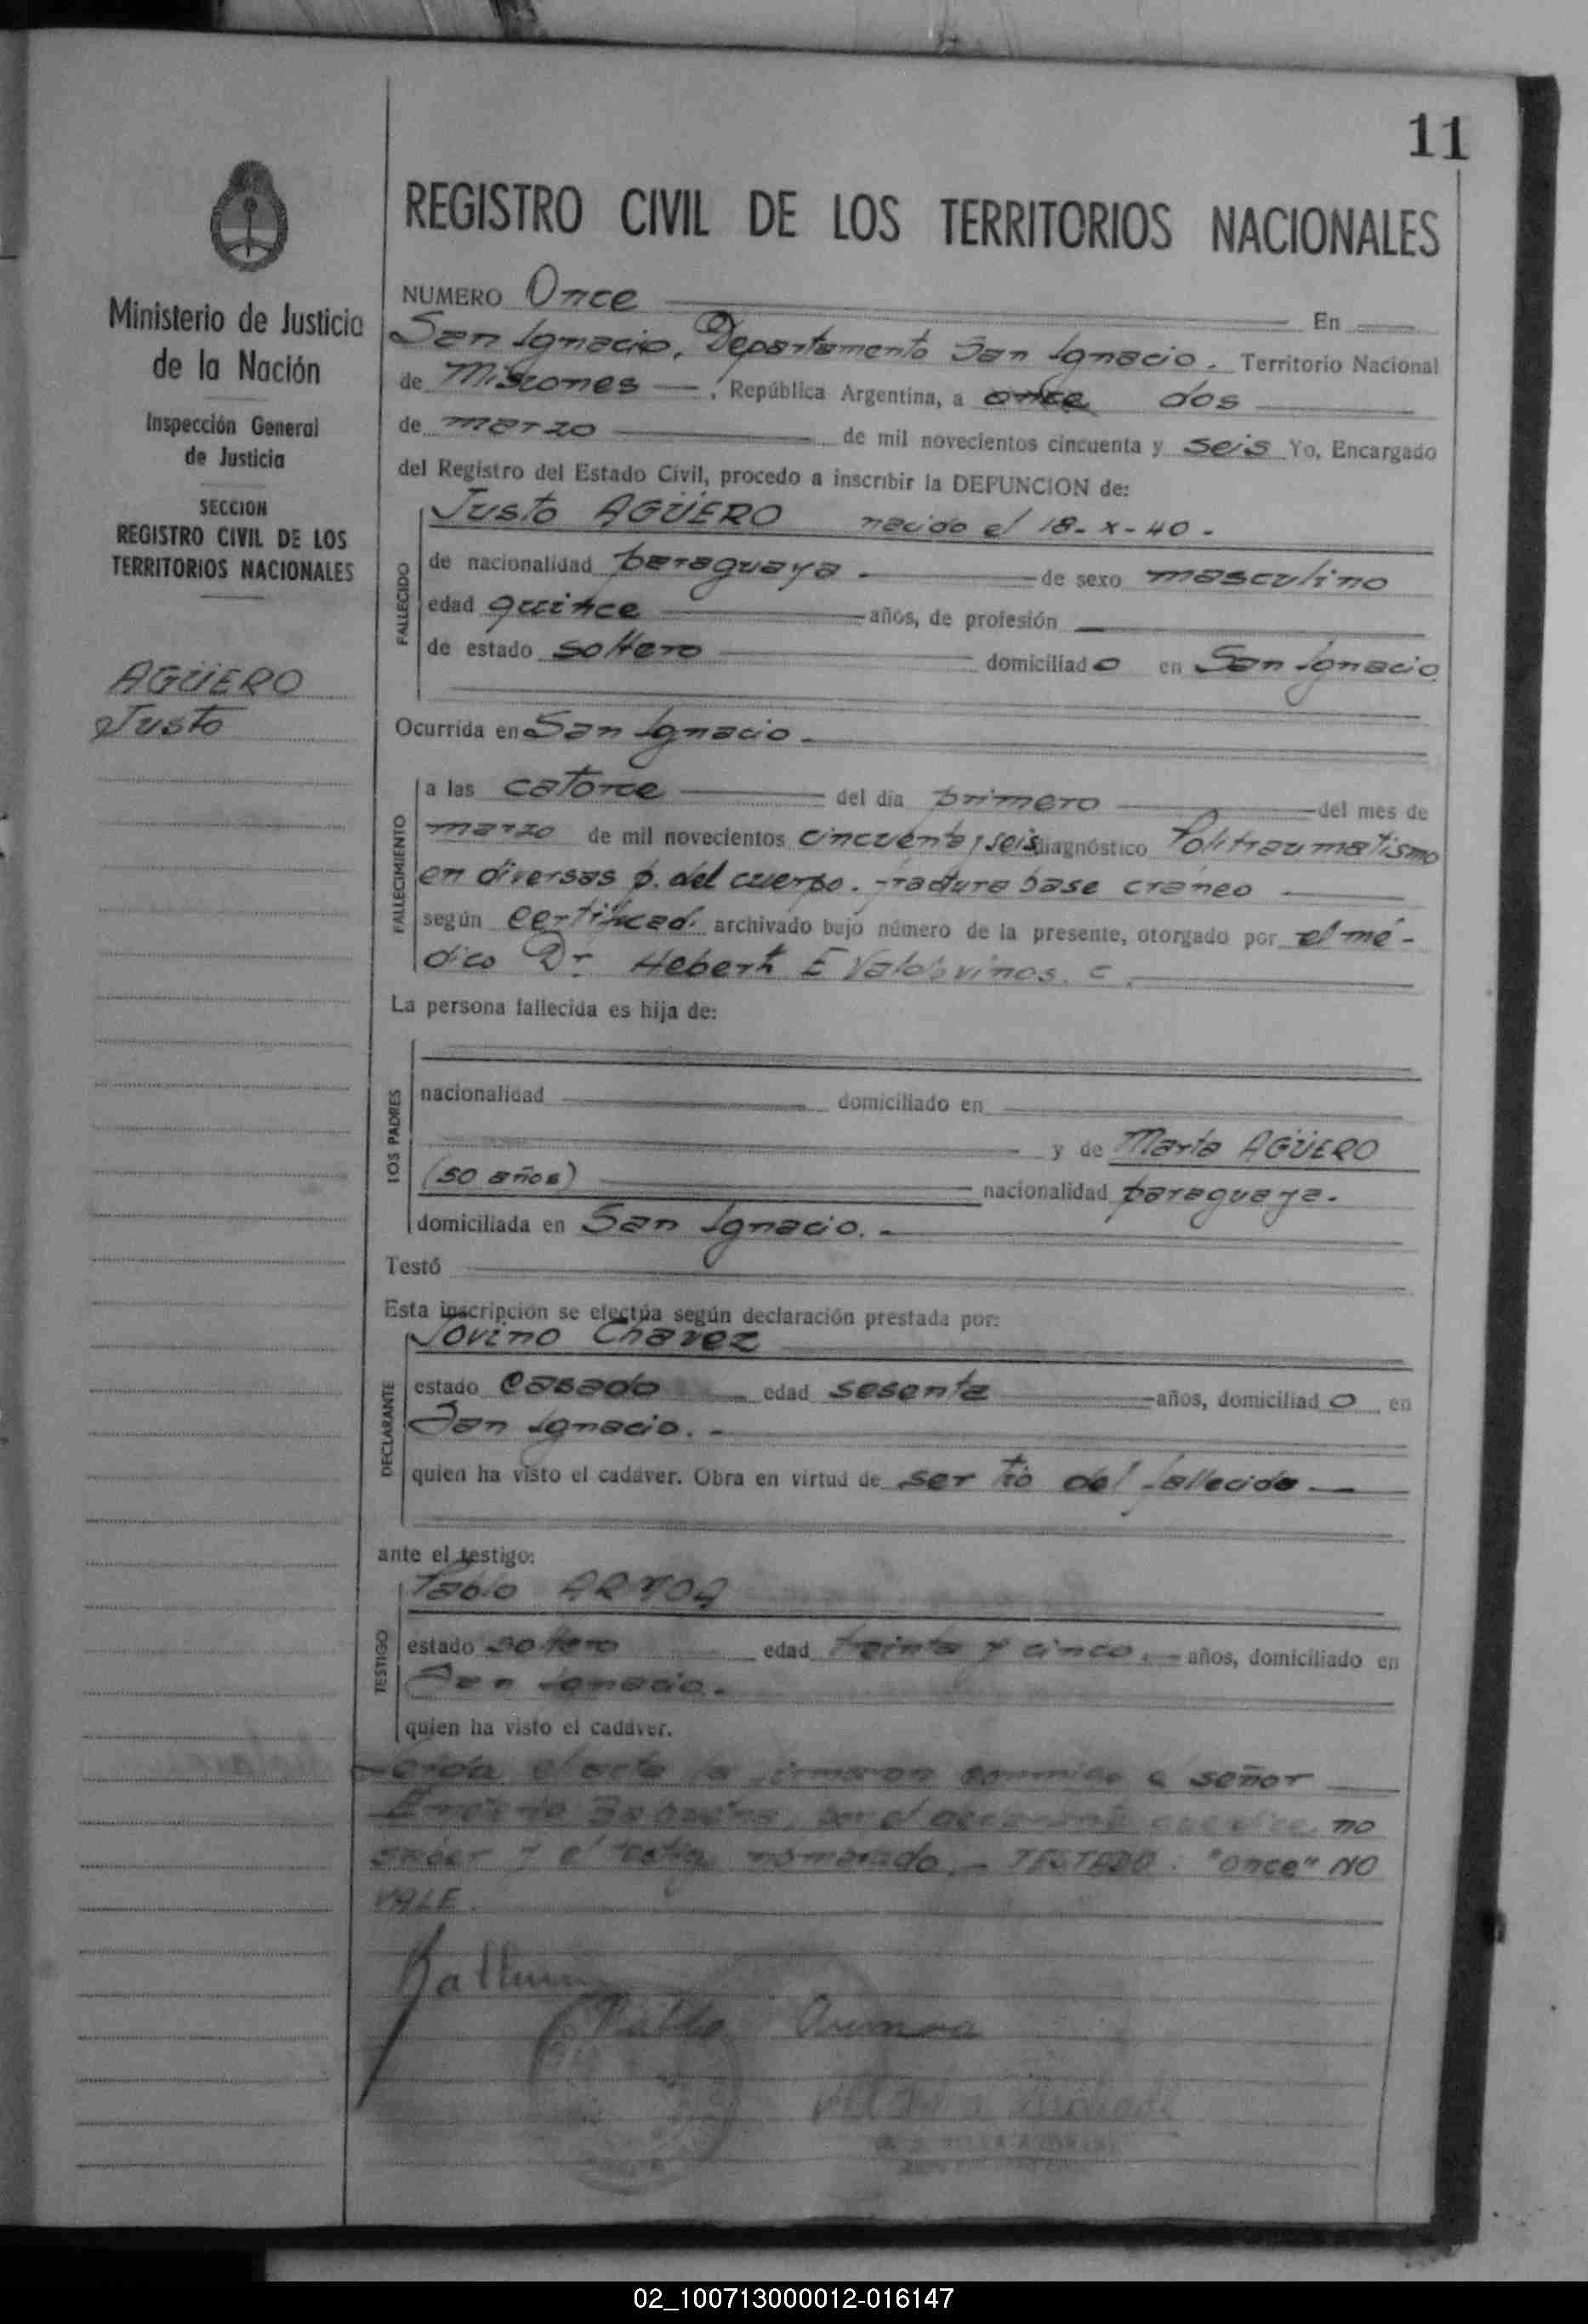 11
REGISTRO CIVIL DE LOS TERRITORIOS NACIONALES
Ministerio de Justicia
de la Nación
Inspección General
de Justicia
SECCION
REGISTRO CIVIL DE LOS
TERRITORIOS NACIONALES
AGÜERO
Justo
NUMERO Once En
San Ignacio, Departamento San Ignacio. Territorio Nacional
de Misiones, República Argentina, a once dos
de marzo de mil novecientos cincuenta y seis Yo, Encargado
del Registro del Estado Civil, procedo a inscribir la DEFUNCION de:
Justo AGÜERO nacido el 18-X-40-
FALLECIDO
de nacionalidad paraguaya de sexo masculino
edad quince años, de profesión
de estado soltero domiciliado en San Ignacio
Ocurrida en San Ignacio
FALLECIMIENTO
a las catorce del día primero del mes de
marzo de mil novecientos cincuenta y seis diagnóstico Politraumatismo
en diversas p. del cuerpo. fractura base cráneo
según certificad. archivado bajo número de la presente, otorgado por el mé-
dico Dr Hebert E Valdovinos. C.
La persona fallecida es hija de:
LOS PADRES
nacionalidad domiciliado en
y de María AGÜERO
(50 años) nacionalidad paraguaya.
domiciliada en San Ignacio.
Testó
Esta inscripción se efectúa según declaración prestada por:
Jovino Chavez
DECLARANTE
estado casado edad sesenta años, domiciliado en
San Ignacio.
quien ha visto el cadáver. Obra en virtud de ser tío del fallecido
ante el testigo:
Pablo
TESTIGO
estado soltero edad treinta y cinco años, domiciliado en
San Ignacio.
quien ha visto el cadáver.
Leída el acta la firmaron conmigo el señor
por el declarante que dice no
saber y el testigo nombrado. - TESTADO: "once" NO
VALE.
Pablo
02_100713000012-016147